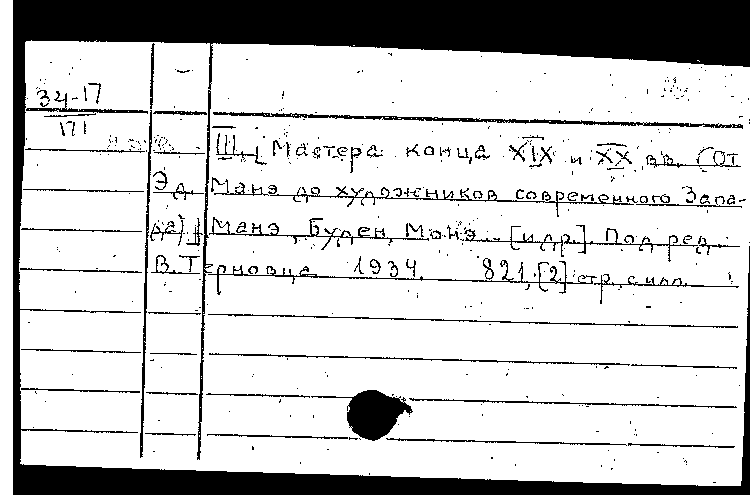 34-17
171
III. Мастера конца XIX и XX вв. (от
Эд. Манэ до художников современного Запа-
да). Манэ, Буден, Монэ... [и др]. Под ред.
В. Терновца 1934. 821, [2] стр. с илл.